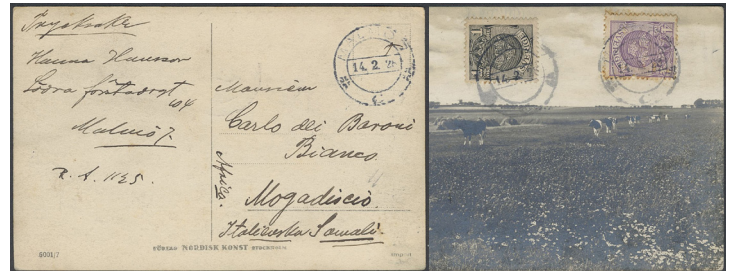 Trycksaker
Hanna Hansson
Södra förstadsgt
40 4
Malmö 7.
R. A. 1125.
14. 2. 2
Monsieur
Carlo dei Baroni
Bianco
Mogadiscio
Italienska Somali
Africa.
5001/7
NORDISK KONST STOCKHOLM
Import
14. 2